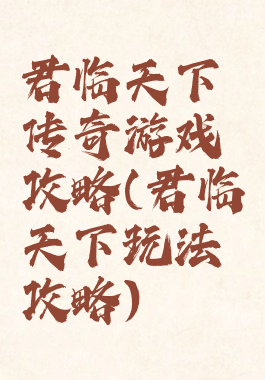 君临天下
传奇游戏
攻略(君临
天下玩法
攻略)